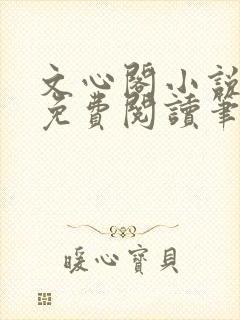 文心閣小說
免費閱讀筆
暖心寶貝